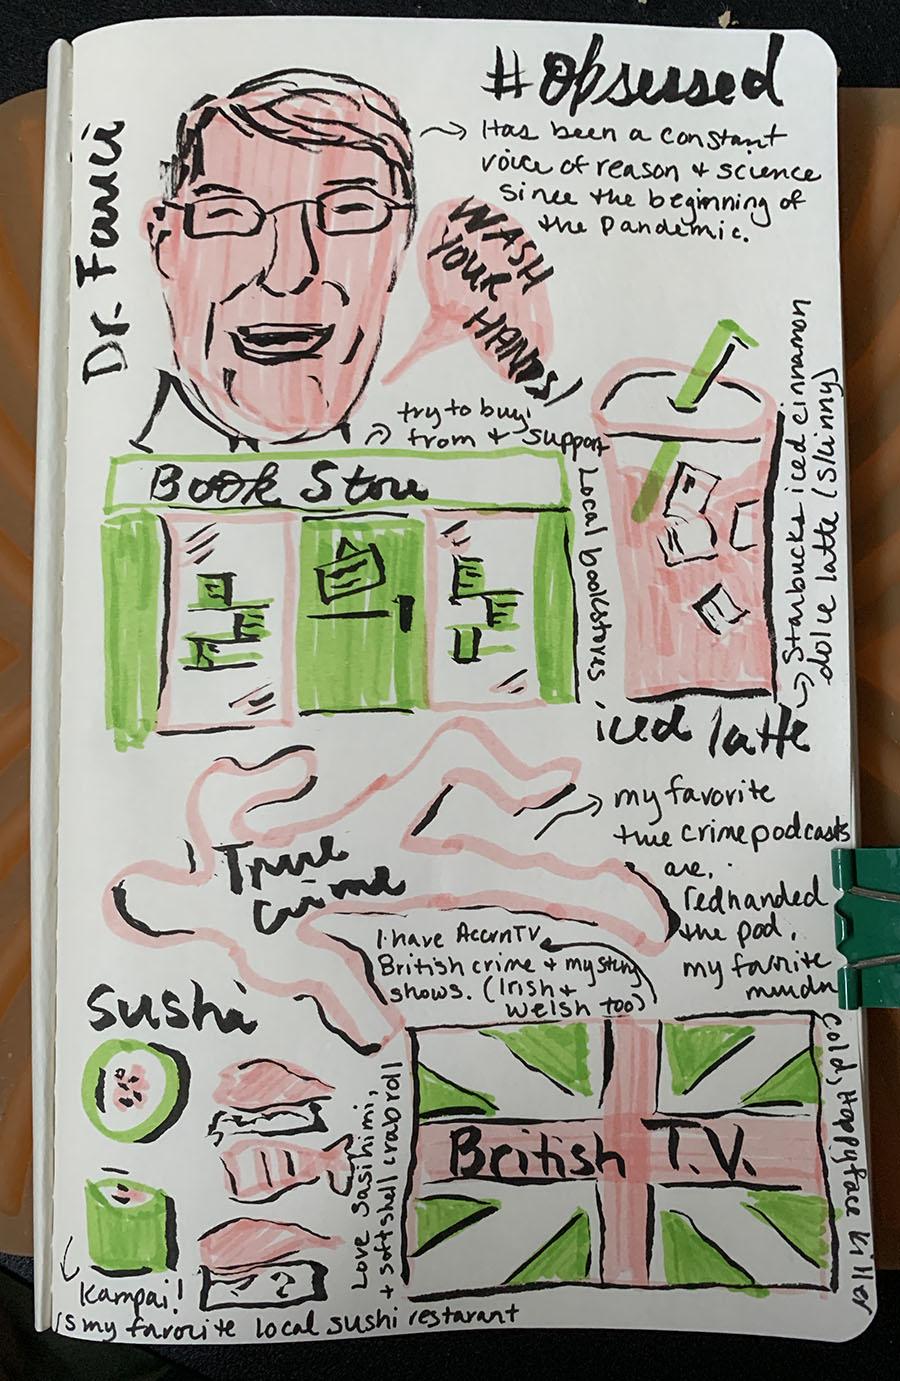 #obsessed
Dr. Fauci
Has been a constant
voice of reason + science
since the beginning of
the Pandemic.
WASH
YOUR
HANDS!
try to buy
from + support
Local bookstores
Book Store
Starbucks iced cinnamon
dolce latte (skinny)
iced latte
True
Crime
my favorite
true crime podcasts
are:
redhanded
the pod,
my favorite
murder
cold, Happyface killer
I have AcornTV
British crime + mystery
shows. (Irish +
Welsh too)
British T.V.
Sushi
Love Sasihimi,
+ softshell crab roll
Kampai!
is my favorite local sushi restarant